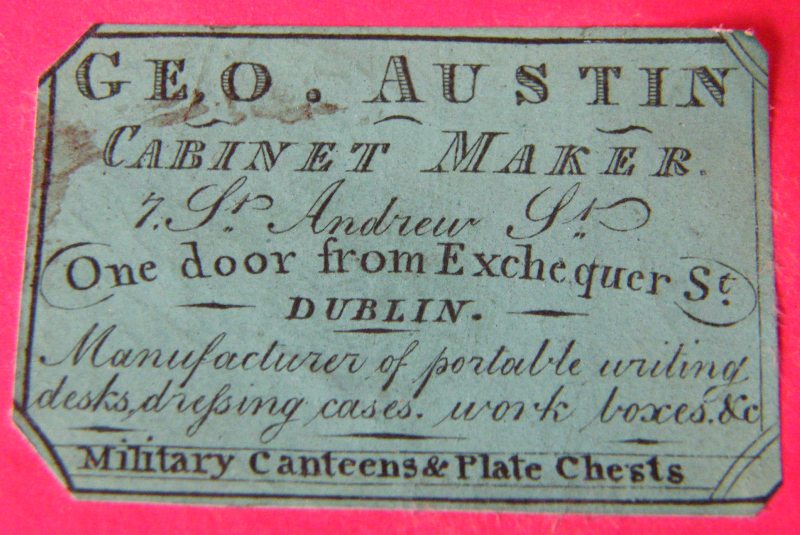 GEO. AUSTIN
CABINET MAKER.
7. St. Andrew St.
One door from Exchequer St.
DUBLIN.
Manufacturer of portable writing
desks, dreſsing cases. work boxes. &c
Military Canteens & Plate Chests